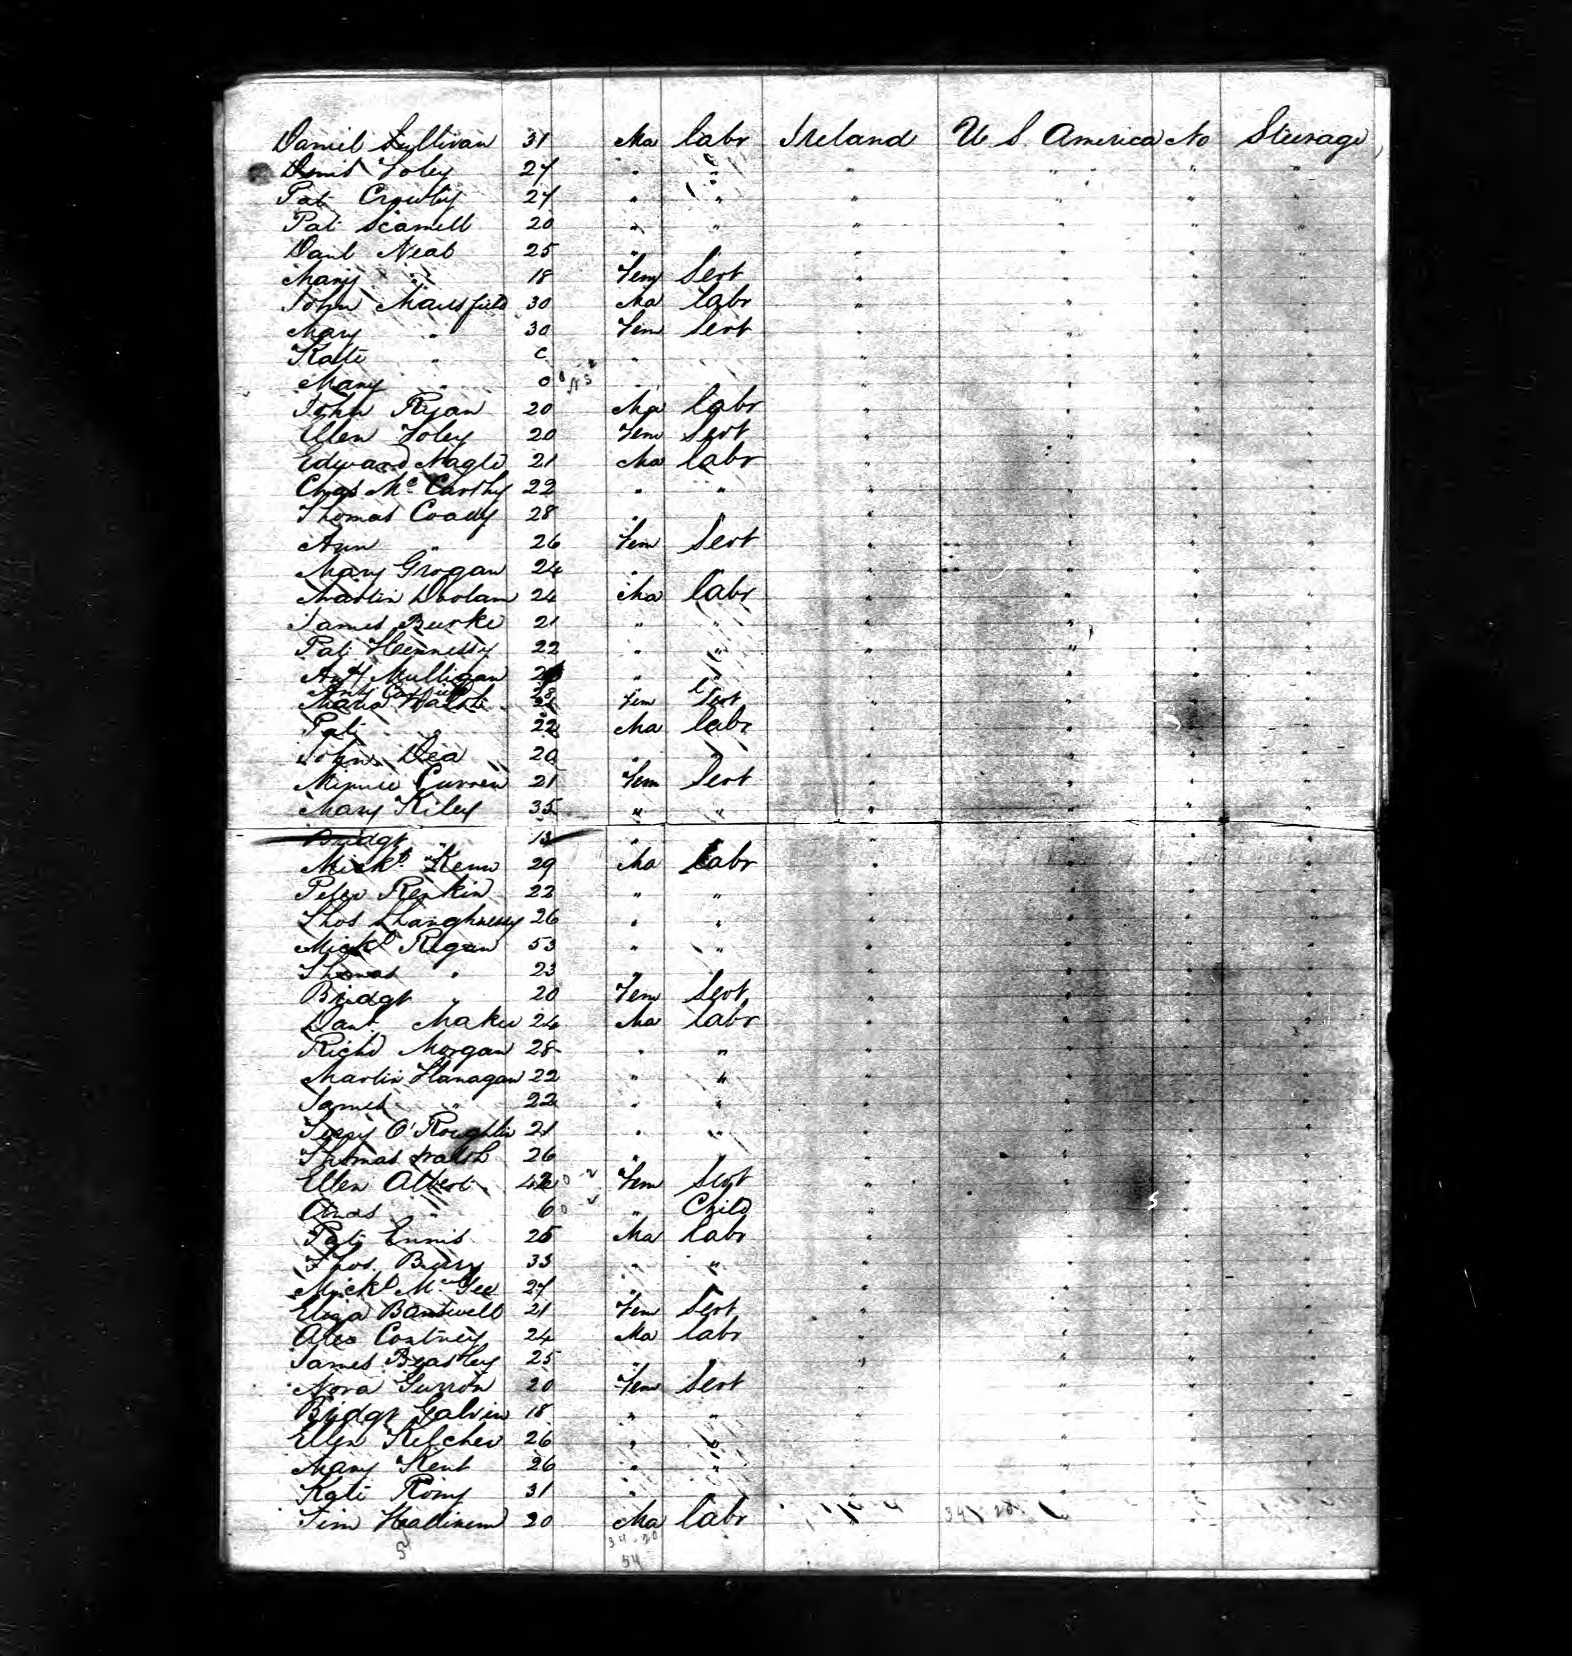 Daniel Sullivan 31 Ma Labr Ireland U S. America No Steerage
Denis Foley 27 " " " " " "
Pat Crowley 27 " " " " " "
Pat Scannell 20 " " " " " "
Danl Neal 25 " " " " "
Mary " 18 Fem Servt " " " "
John Mansfield 30 Ma Labr " " " "
Mary " 30 Fem Servt " " " "
Kate " " " " " "
Mary " 0 " " " "
John Ryan 20 Ma Labr " " " "
Ellen Foley 20 Fem Servt " " " "
Edward Nagle 21 Ma Labr " " " "
Chas McCarthy 22 " " " " " "
Thomas Coady 28 " " " " " "
Ann " 26 Fem Servt " " " "
Mary Grogan 24 " " " " "
Martin Doolan 24 Ma Labr " " " "
James Burke 21 " " " " " "
Pat Hennessy 22 " " " " " "
Anty Mulligan " " " " " "
Anty 28
Maria Walsh 22 Fem Servt " " " "
Pat " 22 Ma Labr " " " "
John Dea 20 " " " " " "
Minnie Curren 21 Fem Servt " " " "
Mary Kiley 35 " " " " " "
Bridgt " 13 " " " " "
Mickl 29 Ma Labr " " " "
Peter Renkin 22 " " " " " "
Thos Shaughnessy 26 " " " " " "
Mickl Regan 53 " " " " " "
Thomas " 23 " " " "
Bridgt " 20 Fem Servt " " " "
Danl Maher 24 Ma Labr " " " "
Richd Morgan 28 " " " " " "
Martin Flanagan 22 " " " " " "
James " 22 " " " " " "
O'Roughlin 21 " " " " " "
Thomas Walsh 26 " " " " "
Ellen Albert 42 Fem Servt " " " "
" 6 " Child " " " "
Pat Ennis 25 Ma Labr " " " "
Thos. 33 " " " " " "
Mickl McGee 27 " " " " "
Eliza 21 Fem Servt " " " "
Alec 24 Ma Labr " " " "
James Beasley 25 " " " " "
Nora 20 Fem Servt " " " "
Bridgt Galvin 18 " " " " " "
Ellen Kelcher 26 " " " " " "
Mary Kent 26 " " " " " "
Kate 31 " " " " "
Tim 20 Ma Labr " " " "
34 - 20
54